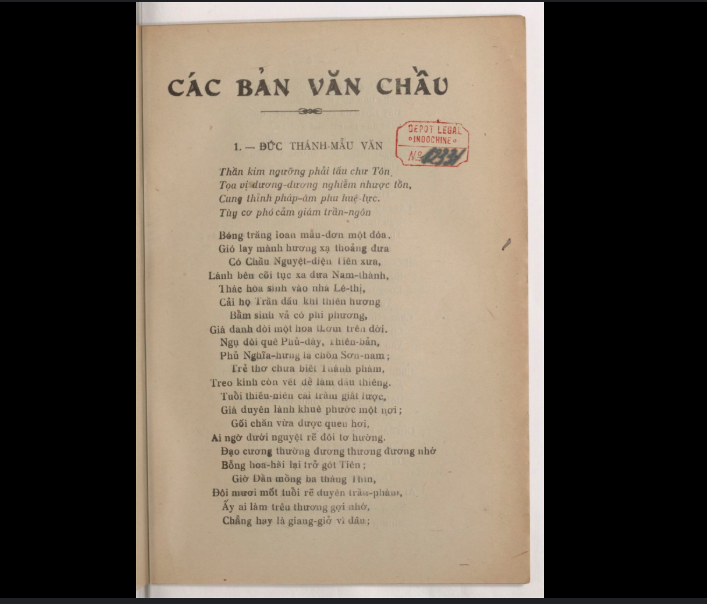 CÁC BẢN VĂN CHẦU
1. — ĐỨC THÁNH-MẪU VĂN
DEPOT LEGAL
INDOCHINE
No
Thần kim ngưỡng phải tấu chư Tôn,
Tọa vị dương-dương nghiễm nhược tồn,
Cung thỉnh pháp-âm phu huệ-lực.
Tùy cơ phó cảm giám trần-ngôn
Bóng trăng loan mẫu-đơn một đóa,
Gió lay mành hương xạ thoảng đưa
Có Chầu Nguyệt-điện Tiên xưa,
Lánh bên cõi tục xa đưa Nam-thành,
Thác hóa sinh vào nhà Lê-thị,
Cải họ Trần dấu khí thiên hương
Bẩm sinh vả có phi phương,
Giá danh đòi một hoa thơm trên đời.
Ngụ đôi quê Phủ-dầy, Thiên-bản,
Phủ Nghĩa-hưng là chốn Sơn-nam;
Trẻ thơ chưa biết Thánh phàm,
Treo kính còn vết để làm dấu thiêng.
Tuổi thiếu-niên cài trâm giắt lược,
Giá duyên lành khuê phước một nơi;
Gối chăn vừa được quen hơi,
Ai ngờ dưới nguyệt rẽ đôi tơ hường.
Đạo cương thường đương thương đương nhớ
Bỗng hoa-hài lại trở gót Tiên;
Giờ Dần mồng ba tháng Thìn,
Đôi mươi mốt tuổi rẽ duyên trần-phàm,
Ấy ai làm trêu thương gợi nhớ,
Chẳng hay là giang-giở vì đâu;